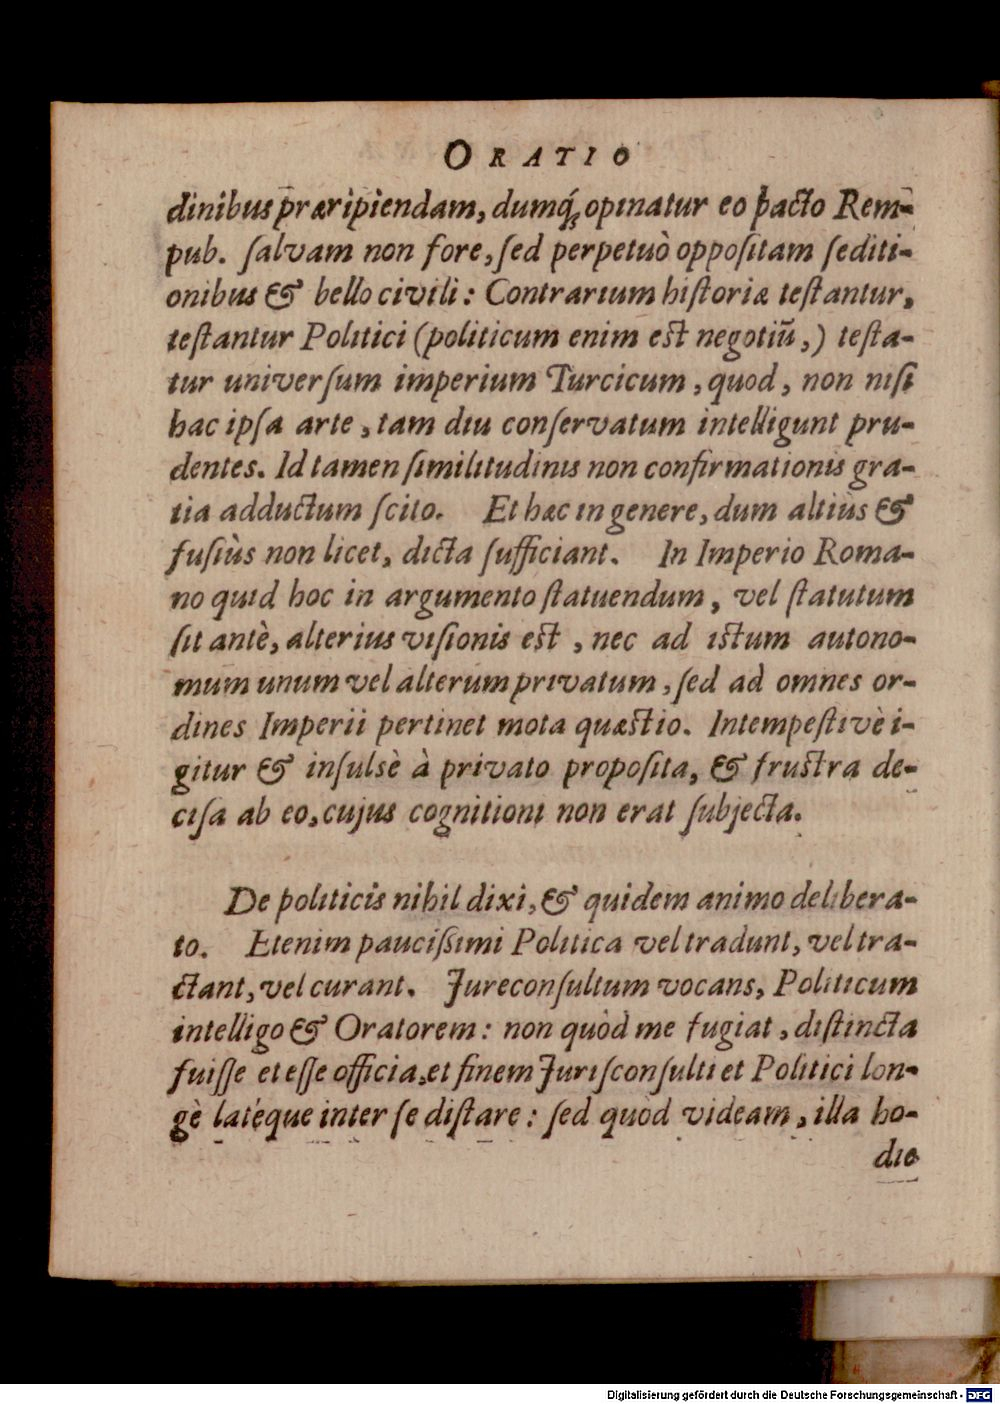 ORATIO
dinibus præripiendam, dumq́; opinatur eo pacto Rem-
pub. ſalvam non fore, ſed perpetuò oppoſitam ſediti-
onibus & bello civili: Contrarium hiſtoriæ teſtantur,
teſtantur Politici (politicum enim eſt negotiū,) teſta-
tur univerſum imperium Turcicum, quod, non niſi
hac ipſa arte, tam diu conſervatum intelligunt pru-
dentes. Id tamen ſimilitudinis non confirmationis gra-
tia adductum ſcito. Et hæc in genere, dum altiùs &
fuſiùs non licet, dicta ſufficiant. In Imperio Roma-
no quid hoc in argumento ſtatuendum, vel ſtatutum
ſit antè, alterius viſionis eſt, nec ad iſtum autono-
mum unum vel alterum privatum, ſed ad omnes or-
dines Imperii pertinet mota quæſtio. Intempeſtivè i-
gitur & inſulsè à privato propoſita, & fruſtra de-
ciſa ab eo, cujus cognitioni non erat ſubjecta.
De politicis nihil dixi, & quidem animo delibera-
to. Etenim pauciſſimi Politica vel tradunt, vel tra-
ctant, vel curant. Jureconſultum vocans, Politicum
intelligo & Oratorem: non quòd me fugiat, diſtincta
fuiſſe et eſſe officia, et finem Juriſconſulti et Politici lon-
gè latéque inter ſe diſtare: ſed quòd videam, illa ho-
die
Digitalisierung gefördert durch die Deutsche Forschungsgemeinschaft - DFG